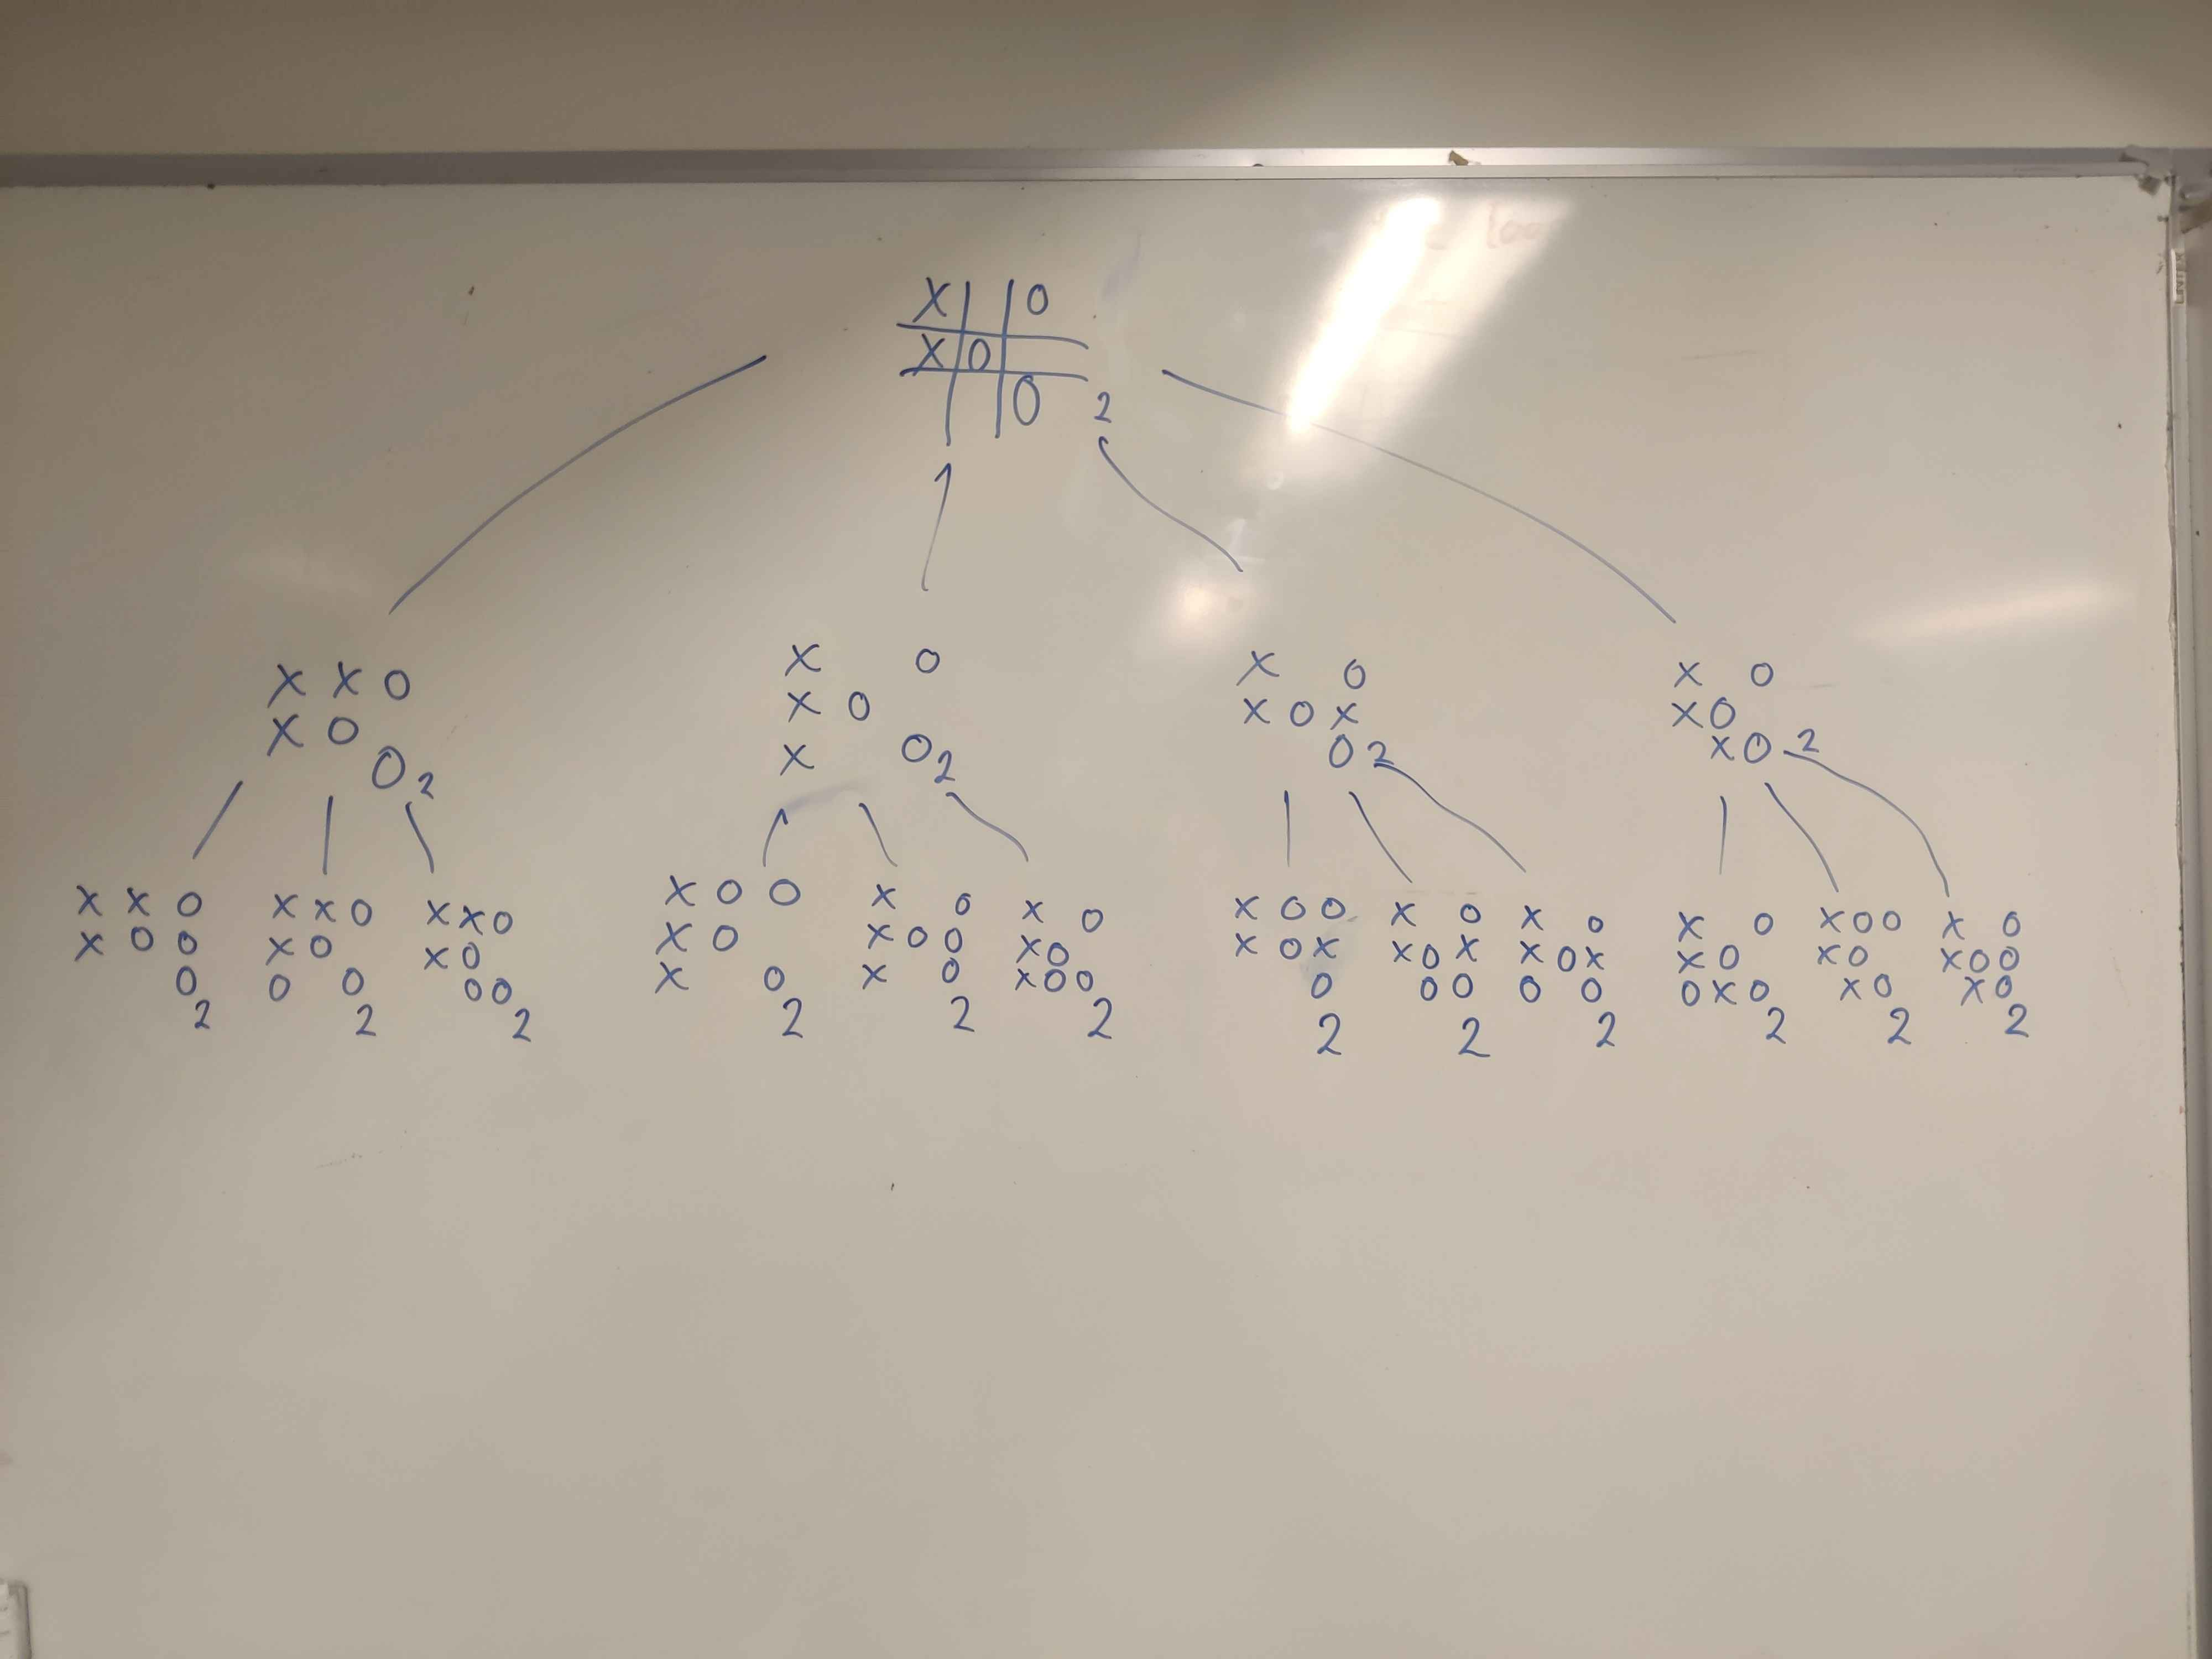 X O
X O
O 2
X X O
X O
O 2
X O
X O
X O 2
X O
X O X
O 2
X O
X O
X O 2
X X O
X O O
O
2
X X O
X O
O O
2
X X O
X O
O O
2
X O O
X O
X O
2
X O
X O O
X O
2
X O
X O
X O O
2
X O O
X O X
O
2
X O
X O X
O O
2
X O
X O X
O O
2
X O
X O
O X O
2
X O O
X O
X O
2
X O
X O O
X O
2